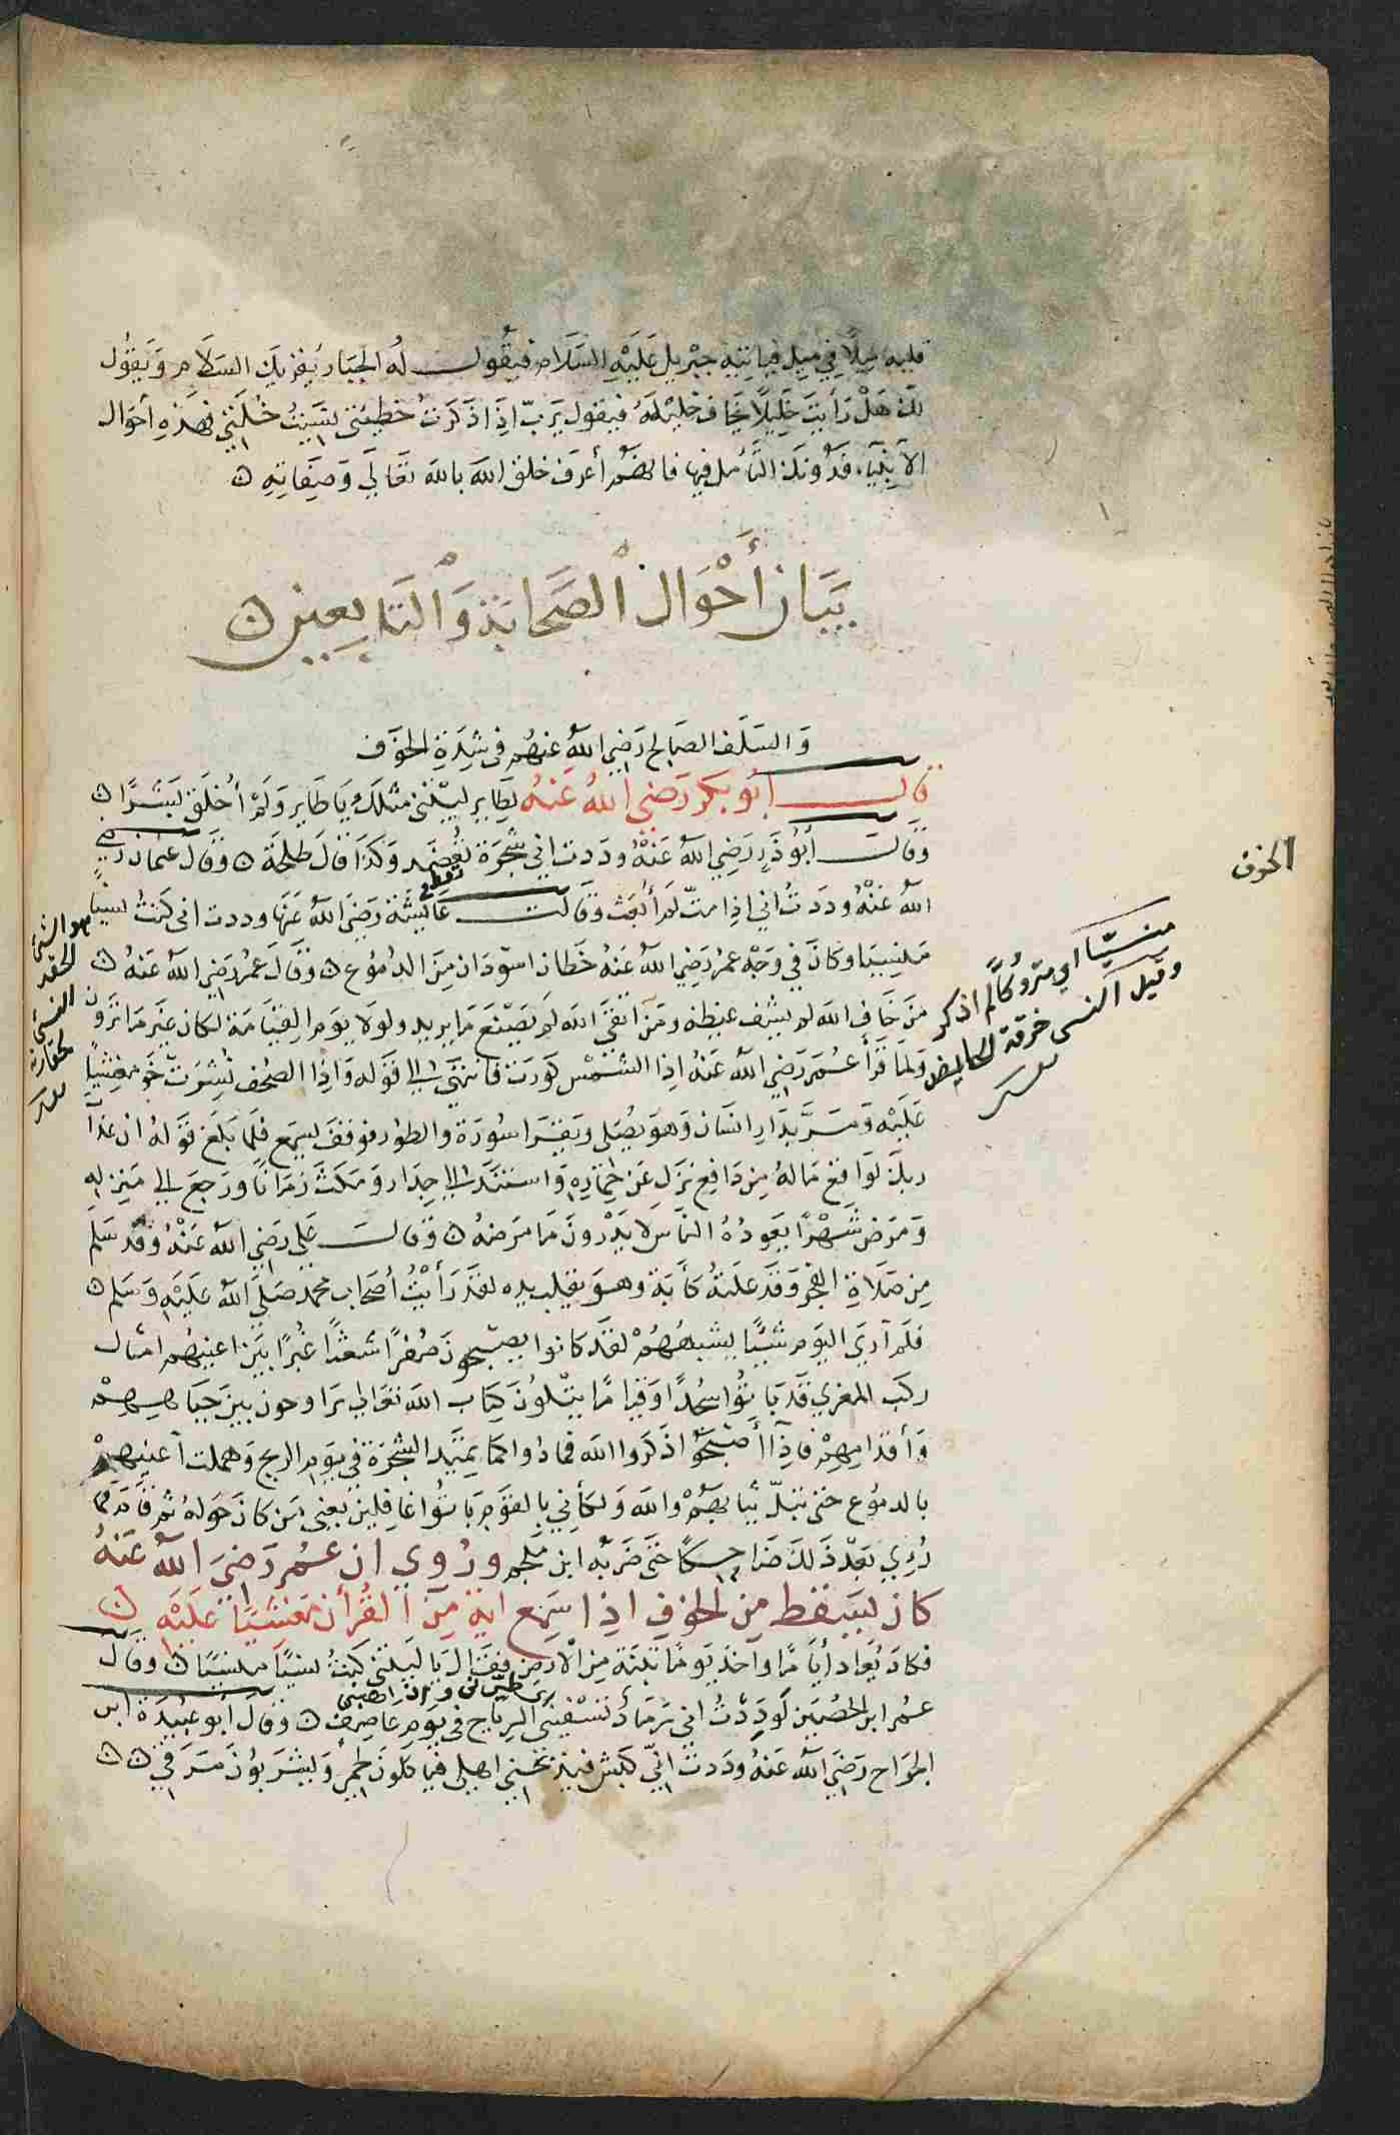 قلبه ميلا في ميل فياتيه جبريل عَلَيْهِ السَّلَام فيقول له الجبار يقريك السَلَام وَيَقُول
لك هَلْ رَأيتَ خَلِيلًا يخاف خليله فيقول يرب اذِا ذَكَرتُ خطيئتى نسَيتُ خُلَّتِي فهَذِهِ أحوَال
الانبياء فدونك التأمل فيها فانهم أعرف خلق الله بالله تعَالَى وَصِفَاتِهِ ن
بَيَان أَحْوَال الصَّحَابَة وَالتَابِعِين ن
وَالسَلَف الصَالح رَضِي اللهُ عنهم في شِدَةِ الخوَف
قالَ ابُو بكر رَضي اللهُ عَنهُ لِطَايِر ليْتنى مثلكَ يَا طَاير وَلَم أُخلَق بَشَرًا ن
وَقالَ أَبُو ذَرٍ رَضِي اللهُ عَنْهُ وددت اني شجرَة تُعضَد وَكذَا قالَ طلحَة ن وَقَالَ عثمان رَضي
اللهُ عَنْهُ ودَدتُ اني اذِا متّ لَم أبعَث وَقَالَت عَائشَة رَضَي اللهُ عَنهَا وددت انى كنتُ نسيًا
مَنِسيَا وَكَانَ فِي وَجْه عمرُ رَضِي اللهُ عَنهُ خَطَان اسوَدَان مِنَ الدمُوع ن وَقَالَ عمرُ رَضِي اللهُ عَنهُ ن
مَن خَاف الله لم يشف غيظه وَمَن اتقى الله لَم يَصْنَع مَا يريد وَلولا يَوم القِيَامَة لكان غيرَ مَا ترَون
وَلمَا قَرَأ عُمَر رَضِي اللهُ عَنهُ اذِا الشَمْس كوّرَت فانتهَى الي قوَله وَاذِا الصحُف نشِرَت خَرَّ مغشيًا
عَلَيْه وَمَرَّ بدَار انسَان وَهوَ يُصَلي وَيقرَا سُورَة وَالطوُر فوقفَ يسمَع فلمَا بَلغ قوَلهُ ان عَذاَب
ربكَ لوَاقع مَا لهُ مِن دَافع نزَل عَن حِمَارِهِ وَاستنَدَ الي جِدَار وَمَكثَ زمَانًا وَرَجعَ الي مَنِزله
وَمَرضَ شَهْرًا يَعوُدُهُ النَاس لَا يَدْرُونَ مَا مَرضهُ ن وَقَالَ عَلي رَضِي اللهُ عَنْهُ وَقد سَلم
مِن صَلَاةِ الفجر وَقد عَلتهُ كَأبَة وَهوَ يقلب يده لقد رَأيْتُ أصحَاب محمد صَلَى اللهُ عَلَيْهِ وَسَلم ن
فلَم أري اليَوم شيئًا يشبههُمْ لقد كانوا يصبحُون صُفرًا شعثًا غبرًا بيَن اعينِهُم امثال
ركَب المعزي قد بَاتوُا سُجدًا وَقيامًا يتلوُن كِتَاب الله تعَالي يرَاوحون بين جبَاههِمْ
وَأقدَامِهِم فاذِا أصْبَحوُا ذكَروا الله فمادُوا كما يَمِيد الشجَرَة في يَوم الريح وَهملت أعينِهمْ
بالدموُع حَتى تبلّ ثيابهُمْ وَالله وَلكَأني بالقوَم بَاتُوا غافِلين يعني مَن كانَ حَوَلهُ ثم قامَ فمَا
رُؤِي بَعْد ذَلكَ ضَاحِكًا حَتَى ضَرَبَه ابن مُلجم وَرُوي ان عمُر رَضيَ اللهُ عَنهُ
كان يسَقط من الخوفِ اذِا سَمِعَ ايَة مِنَ القُرأن مَغشيًا عَلَيْهِ ن
فكَان يُعَاد أيَامًا وَاخذ يَومًا تبنة مِن الأرضِ فقَالَ يَا ليَتني كنتُ نسيًا منسيًا ن وَقَالَ
عمُر ابن الحُصَين لوَدِدتُ اني رَمَاد تنسْفني الرِيَاح في يَوم عَاصِف ن وَقَالَ أبو عُبَيْدَة ابن
الجرَاح رَضيَ اللهُ عَنهُ ودَدتُ انيّ كبش فيَذبَحني اهلي فيَاكلوُنَ لحمي وَيَشرَبوُن مَرَقي ن ن
الخوف
منسيًّا اي متروكًا لم اذكر
وقيل النسى خرقة الحايض
هو الشئ
الحقير
المنسي
لحقارته